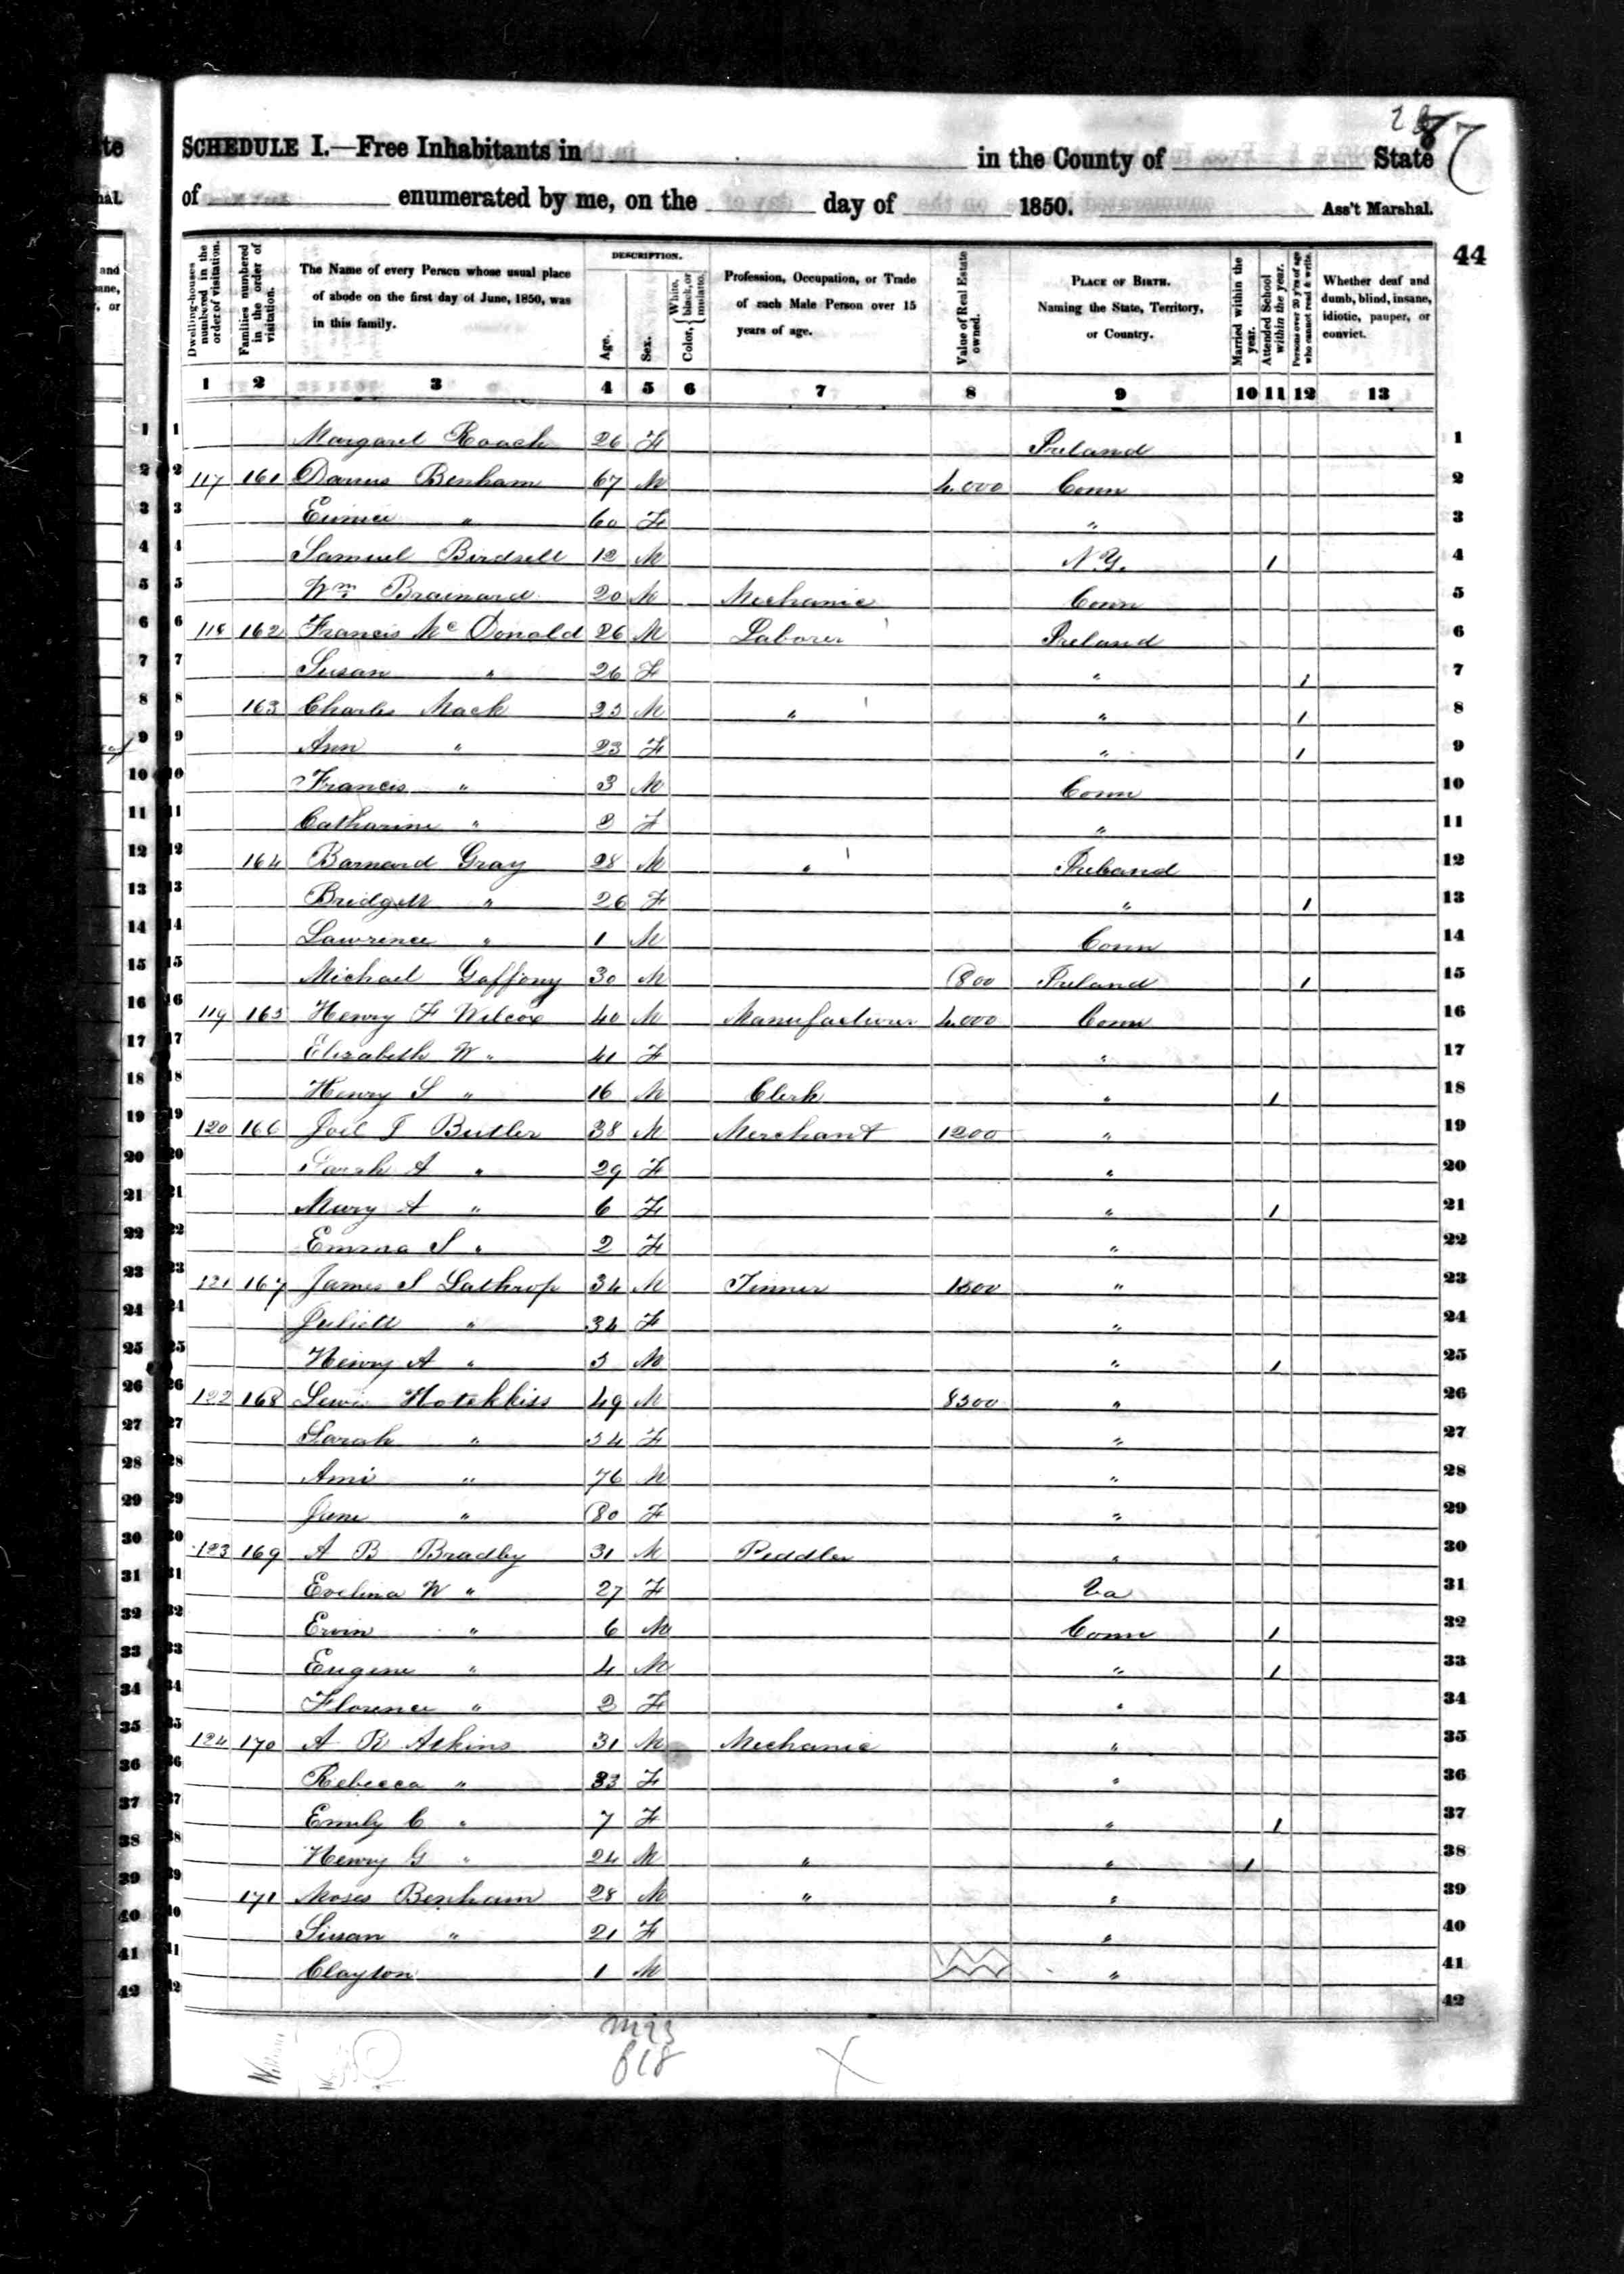 287
SCHEDULE I.—Free Inhabitants in in the County of State
of enumerated by me, on the day of 1850. Ass't Marshal.
44
Dwelling-houses numbered in the order of visitation.
Families numbered in the order of visitation.
The Name of every Person whose usual place of abode on the first day of June, 1850, was in this family.
DESCRIPTION.
Age.
Sex.
Color, { White, black, or mulatto.
Profession, Occupation, or Trade of each Male Person over 15 years of age.
Value of Real Estate owned.
PLACE OF BIRTH. Naming the State, Territory, or Country.
Married within the year.
Attended School within the year.
Persons over 20 y'rs of age who cannot read & write.
Whether deaf and dumb, blind, insane, idiotic, pauper, or convict.
1 2 3 4 5 6 7 8 9 10 11 12 13
1 Margaret Roach 26 F Ireland 1
2 117 161 Darius Benham 67 M 4.000 Conn 2
3 " 60 F " 3
4 Samuel Birdsell 12 M N.Y. 1 4
5 Wm Brainard 20 M Mechanic Conn 5
6 118 162 Francis Mc Donald 26 M Laborer Ireland 6
7 Susan " 26 F " 1 7
8 163 Charles Mack 25 M " " 1 8
9 Ann " 23 F " 1 9
10 Francis " 3 M Conn 10
11 Catharine " 2 F " 11
12 164 Barnard Gray 28 M " Ireland 12
13 Bridgett " 26 F " 1 13
14 Lawrence " 1 M Conn 14
15 Michael Gaffony 30 M 800 Ireland 1 15
16 119 165 Henry F Wilcox 40 M Manufacturer 4.000 Conn 16
17 Elizabeth W " 41 F " 17
18 Henry S " 16 M Clerk " 1 18
19 120 166 Joel T Butler 38 M Merchant 1200 " 19
20 Sarah A " 29 F " 20
21 Mary A " 6 F " 1 21
22 Emma S " 2 F " 22
23 121 167 James S Lathrop 34 M Tinner 1500 " 23
24 Juliett " 34 F " 24
25 Henry A " 5 M " 1 25
26 122 168 Lewis Hotchkiss 49 M 8500 " 26
27 Sarah " 54 F " 27
28 Ami " 76 M " 28
29 June " 80 F " 29
30 123 169 A B Bradley 31 M Peddler " 30
31 Evelina W " 27 F Va 31
32 Ervin " 6 M Conn 1 32
33 Eugene " 4 M " 1 33
34 Florence " 2 F " 34
35 124 170 A R Atkins 31 M Mechanic " 35
36 Rebecca " 33 F " 36
37 Emily C " 7 F " 1 37
38 Henry G " 24 M " " 1 38
39 171 Moses Benham 28 M " " 39
40 Susan " 21 F " 40
41 Clayton 1 M " 41
42 42
M23
F18
X